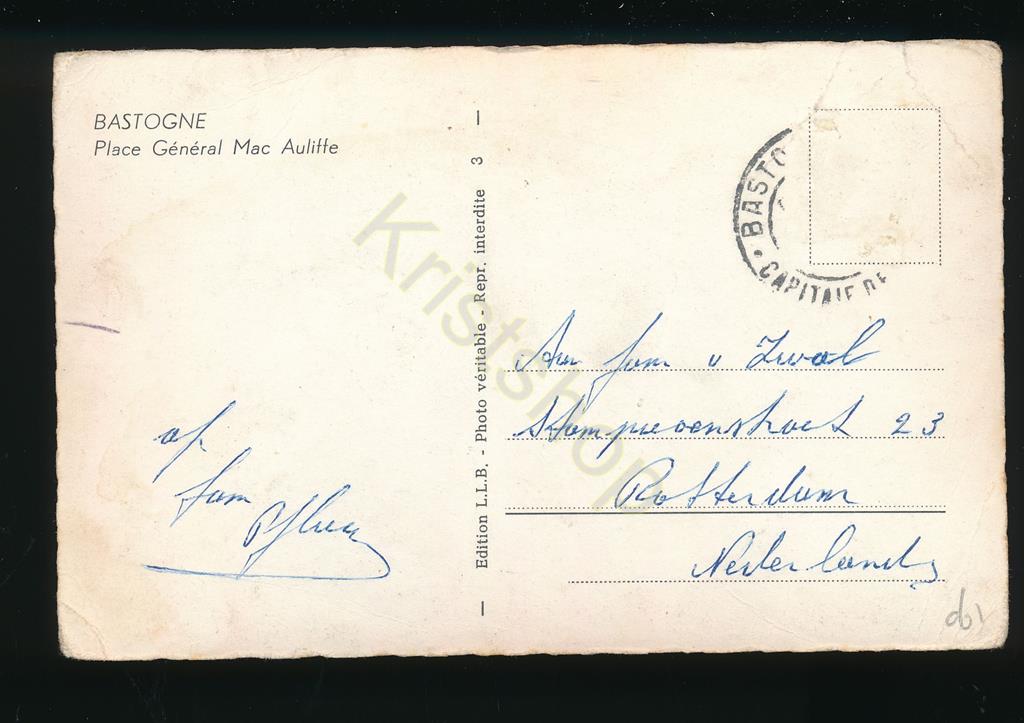 BASTOGNE
Place Général Mac Auliffe
Edition L.L.B. - Photo véritable - Repr. interdite 3
BASTO
CAPITALE DE
Kristshop
fam v Zwol
23
Rotterdam
Nederland
af.
fam